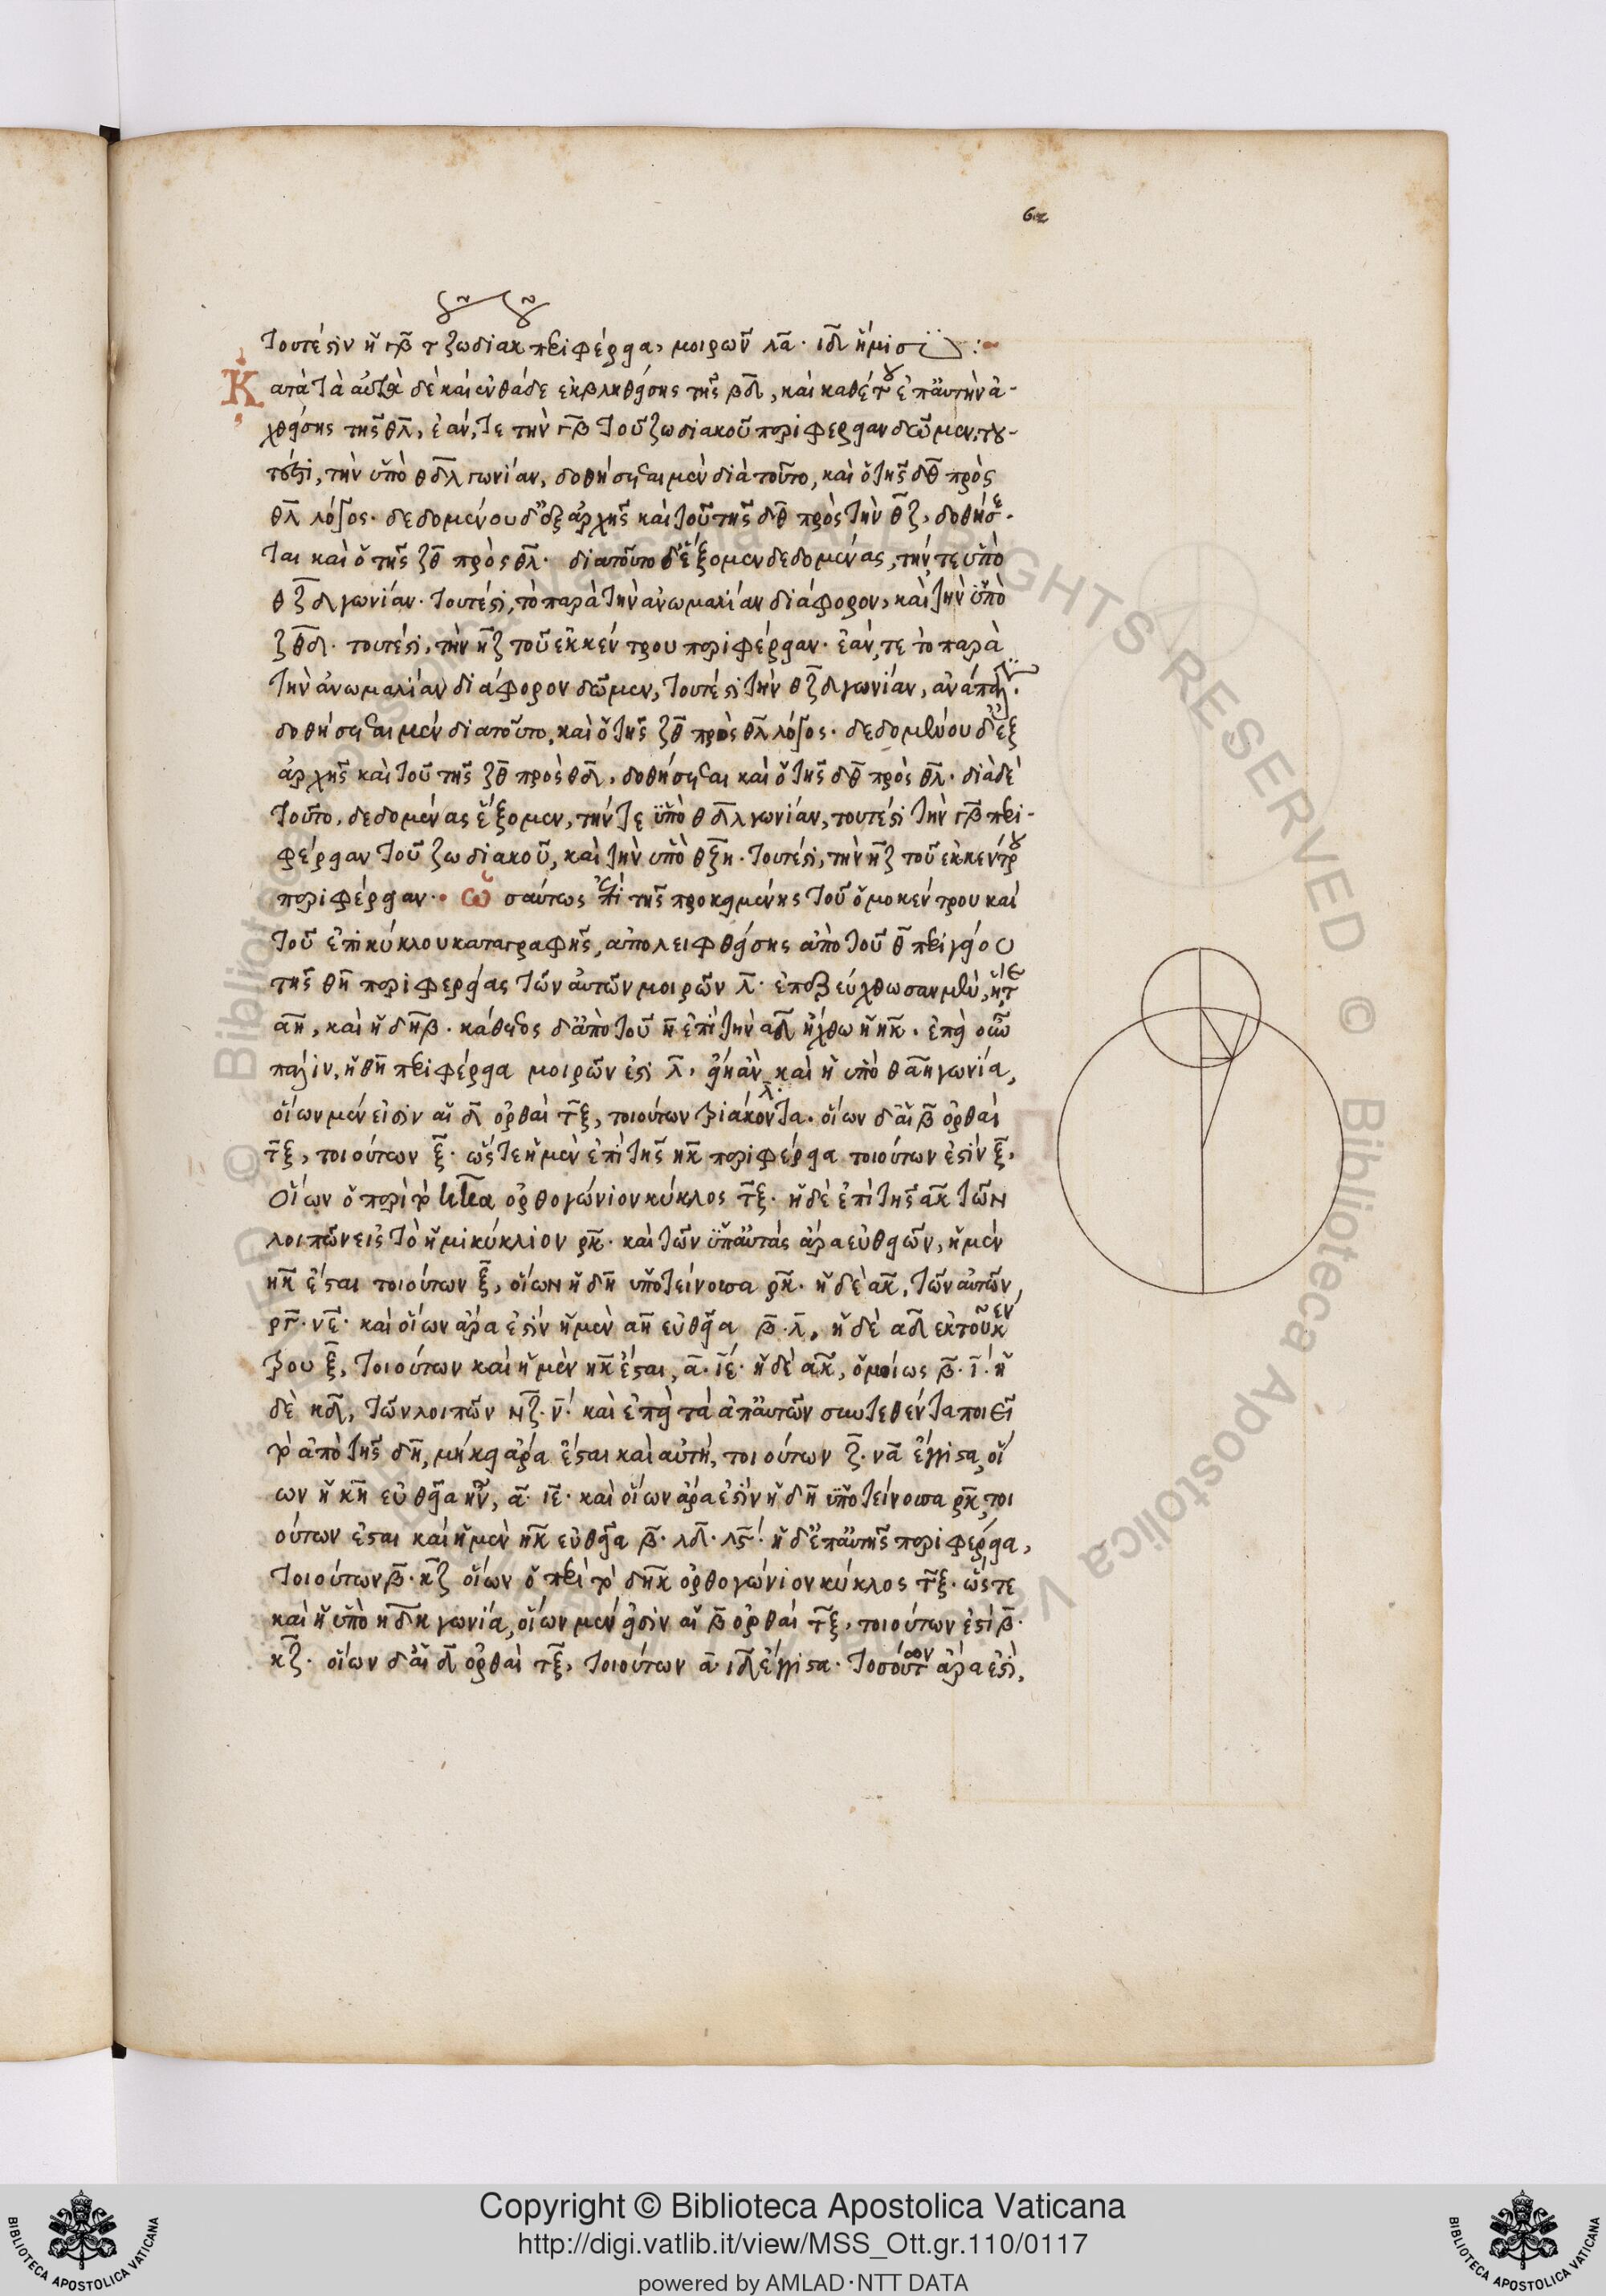 62
τουτέστιν ἡ γβ τοῦ ζωδιακοῦ περιφέρεια, μοιρῶν λα · ιδ ἥμισυ :
Κατὰ τὰ αὐτὰ δὲ καὶ ἐνθάδε ἐκβληθείσης τῆς βδ, καὶ καθέτου ἐπ αὐτὴν ἀ-
χθείσης τῆς θλ, ἐάν, τε τὴν γβ τοῦ ζωδιακοῦ περιφέρειαν δῶμεν, του-
τέστι, τὴν ὑπὸ θδλ γωνίαν, δοθήσεται μὲν διὰ τοῦτο, καὶ ὁ τῆς δθ πρὸς
θλ λόγος · δεδομένου δ ἐξ ἀρχῆς καὶ τοῦ τῆς δθ πρὸς τὴν θζ, δοθήσε-
ται καὶ ὁ τῆς ζθ πρὸς θλ · διὰ τοῦτο δ ἕξομεν δεδομένας, τήν, τε ὑπὸ
θζδ γωνίαν · τουτέστι, τὸ παρὰ τὴν ἀνωμαλίαν διάφορον, καὶ τὴν ὑπὸ
ζθδ · τουτέστι, τὴν ηζ τοῦ ἐκκέντρου περιφέρειαν · ἐάν, τε τὸ παρὰ
τὴν ἀνωμαλίαν διάφορον δῶμεν, τουτέστι τὴν θζδ γωνίαν, ἀνάπαλιν ·
δοθήσεται μὲν διὰ τοῦτο, καὶ ὁ τῆς ζθ πρὸς θλ λόγος · δεδομένου δ ἐξ
ἀρχῆς καὶ τοῦ τῆς ζθ πρὸς θδ, δοθήσεται καὶ ὁ τῆς δθ πρὸς θλ · διὰ δὲ
τοῦτο, δεδομένας ἕξομεν, τήν τε ὑπὸ θδλ γωνίαν, τουτέστι τὴν γβ περι-
φέρειαν τοῦ ζωδιακοῦ, καὶ τὴν ὑπὸ θζη · τουτέστι, τὴν ηζ τοῦ ἐκκέντρου
περιφέρειαν · Ὡσαύτως ἐπὶ τῆς προκειμένης τοῦ ὁμοκέντρου καὶ
τοῦ ἐπικύκλου καταγραφῆς, ἀπολειφθείσης ἀπὸ τοῦ θ περιγείου
τῆς θη περιφερείας τῶν αὐτῶν μοιρῶν λ · ἐπεζεύχθωσαν μὲν, ἥτε
αη, καὶ ἡ δηβ · κάθετος δ ἀπὸ τοῦ η ἐπὶ τὴν αδ ἤχθω ἡ ηκ · ἐπεὶ οὖν
πάλιν, ἡ θη περιφέρεια μοιρῶν ἐστι λ, εἴη ἂν καὶ ἡ ὑπὸ θαη γωνία,
οἵων μέν εἰσιν αἱ δ ὀρθαὶ τξ, τοιούτων τριάκοντα · οἵων δ αἱ β ὀρθαὶ
τξ, τοιούτων ξ · ὥστε ἡ μὲν ἐπὶ τῆς ηκ περιφέρεια τοιούτων ἐστὶν ξ,
οἵων ὁ περὶ τὸ ηκα ὀρθογώνιον κύκλος τξ · ἡ δὲ ἐπὶ τῆς ακ τῶν
λοιπῶν εἰς τὸ ἡμικύκλιον ρκ · καὶ τῶν ὑπ αὐτὰς ἄρα εὐθειῶν, ἡ μὲν
ηκ ἔσται τοιούτων ξ, οἵων ἡ δη ὑποτείνουσα ρκ · ἡ δὲ ακ, τῶν αὐτῶν,
ργ · νε · καὶ οἵων ἄρα ἐστὶν ἡ μὲν αη εὐθεῖα β · λ, ἡ δὲ αδ ἐκ τοῦ κέν
τρου ξ, τοιούτων καὶ ἡ μὲν ηκ ἔσται, α · ιε · ἡ δὲ ακ, ὁμοίως β · ι · ἡ
δὲ κδ, τῶν λοιπῶν νζ · ν · καὶ ἐπεὶ τὰ ἀπ αὐτῶν συντεθέντα ποιεῖ
τὸ ἀπὸ τῆς δη, μήκει ἄρα ἔσται καὶ αὐτή, τοιούτων ζ · να ἔγγιστα, οἵ
ων ἡ κη εὐθεῖα ἦν, α · ιε · καὶ οἵων ἄρα ἐστὶν ἡ δη ὑποτείνουσα ρκ, τοι
ούτων ἔσται καὶ ἡ μὲν ηκ εὐθεῖα β · λδ · λϛ · ἡ δ ἐπ αὐτῆς περιφέρεια,
τοιούτων β · κζ οἵων ὁ περὶ τὸ δηκ ὀρθογώνιον κύκλος τξ · ὥστε
καὶ ἡ ὑπὸ ηδκ γωνία, οἵων μέν εἰσιν αἱ β ὀρθαὶ τξ, τοιούτων ἐστὶ β ·
κζ · οἵων δ αἱ δ ὀρθαὶ τξ, τοιούτων α ιδ ἔγγιστα · τοσούτων ἄρα ἐστὶ,
© Biblioteca Apostolica Vaticana ALL RIGHTS RESERVED
Copyright © Biblioteca Apostolica Vaticana
http://digi.vatlib.it/view/MSS_Ott.gr.110/0117
powered by AMLAD·NTT DATA
BIBLIOTECA APOSTOLICA VATICANA
BIBLIOTECA APOSTOLICA VATICANA